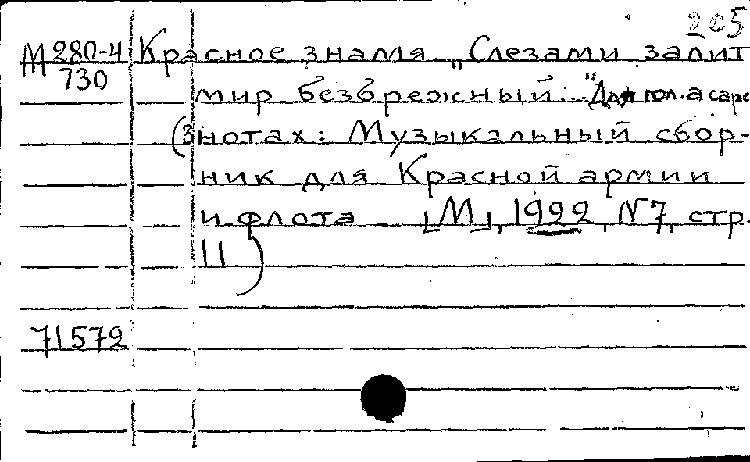 205
М 280-4 Красное знамя „Слезами залит
730 мир безбрежный:" Для гол. a cape
(В нотах: Музыкальный сбор-
ник для Красной армии
и флота [М], 1922, N7, стр.
11)
71572